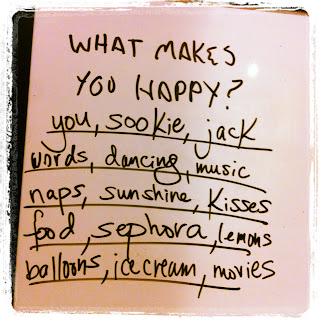 WHAT MAKES
YOU HAPPY?
you, sookie, jack
words, dancing, music
naps, sunshine, kisses
food, sephora, lemons
balloons, ice cream, movies